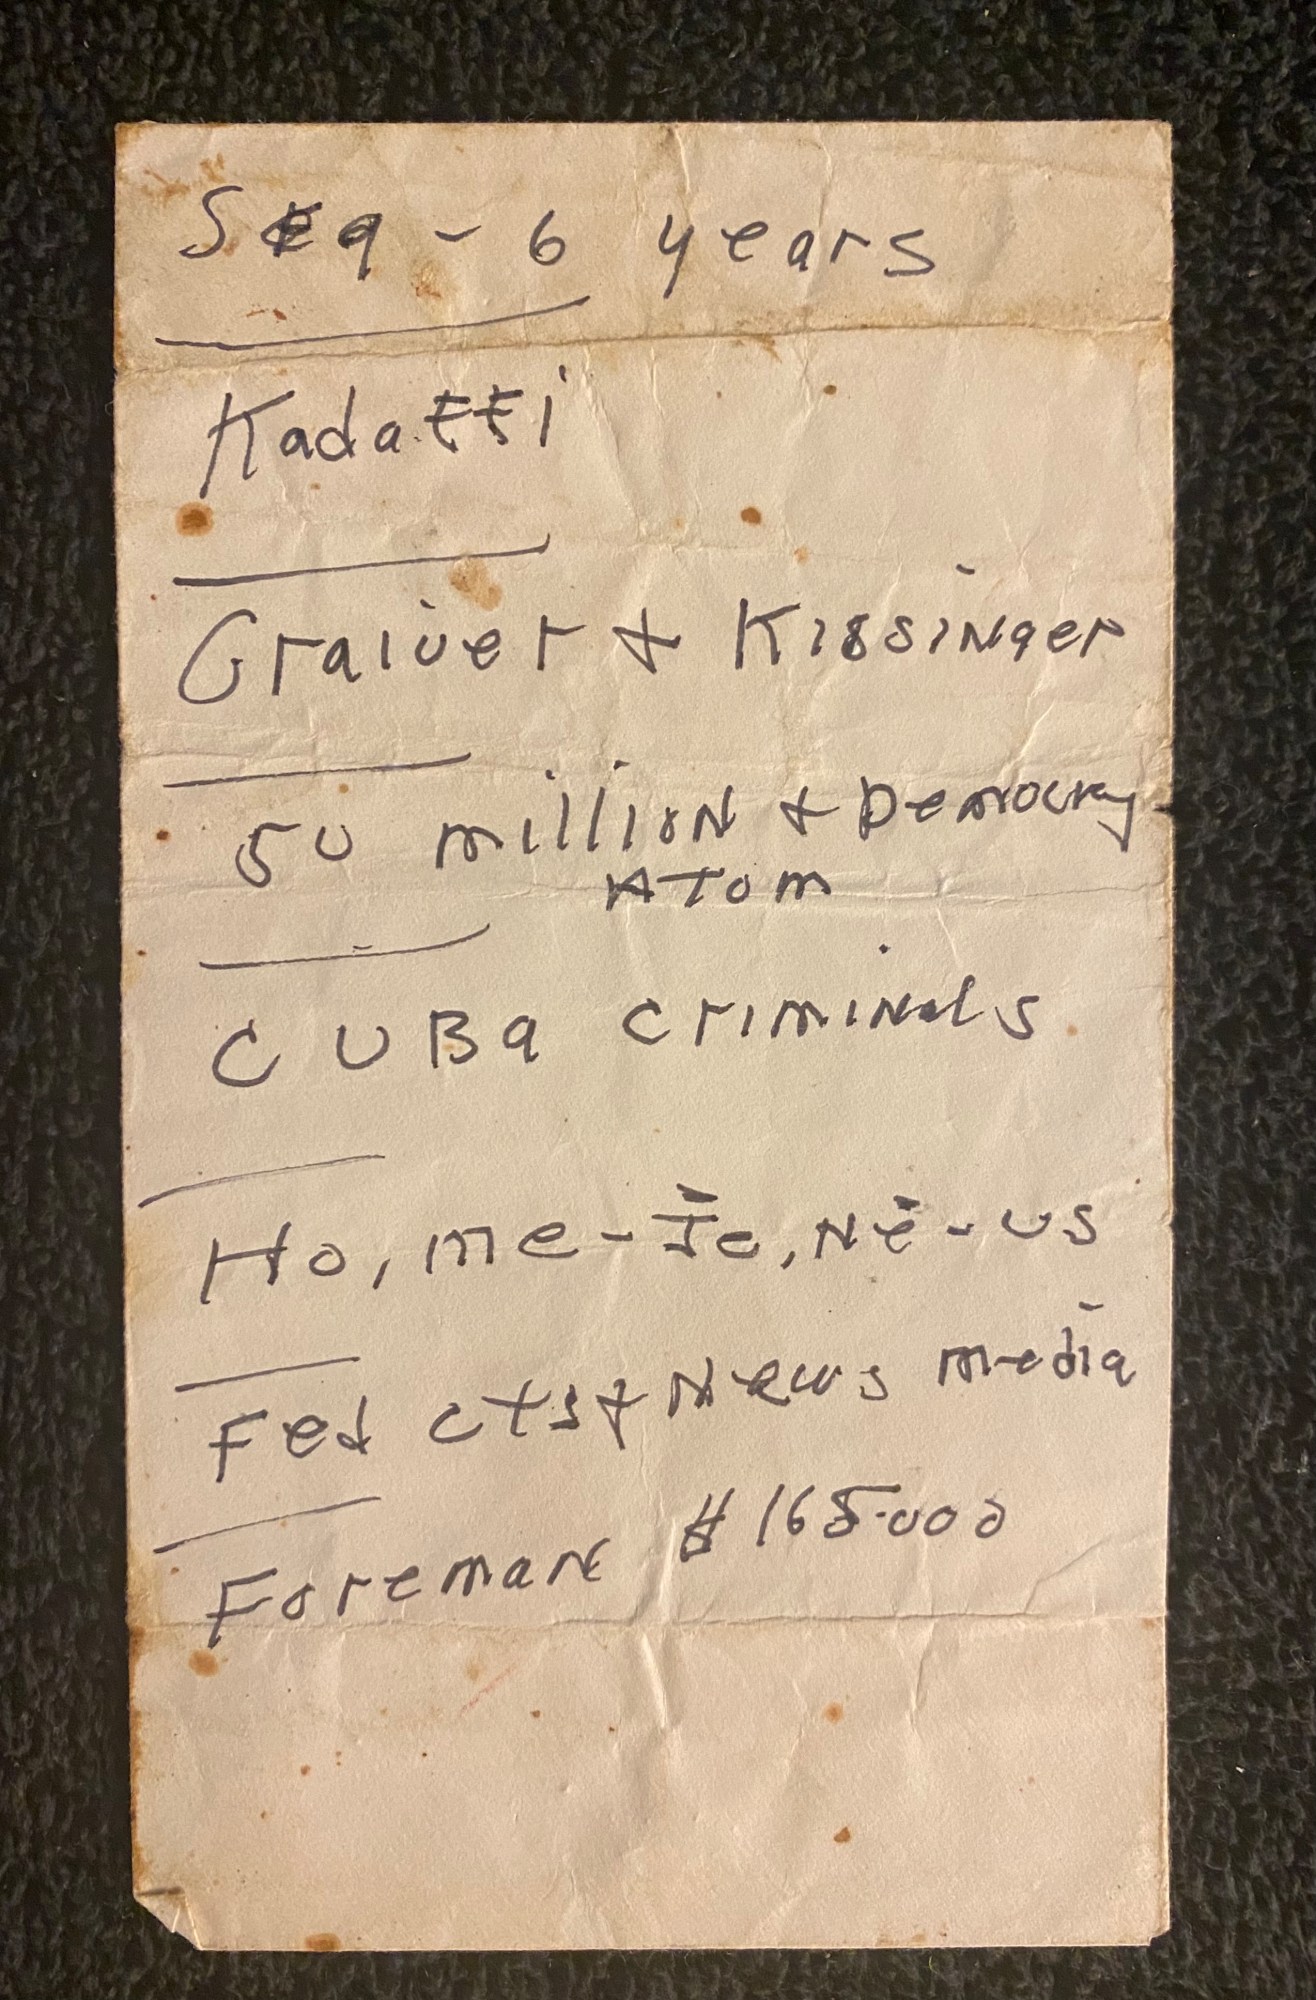 Seq - 6 years
Kadaffi
Graiver & Kissinger
50 million & Democracy
Atom
CUBa criminals
Ho, me - Je, Ne - us
Fed cts & News media
Foreman $165.000